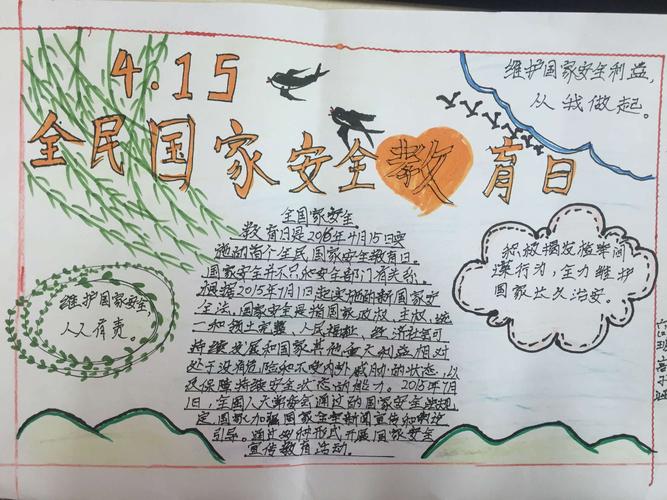 4.15
全民国家安全教育日
维护国家安全利益,
从我做起。
全国家安全
教育日是2016年4月15日要
施的首个全民国家安全教育日。
国家安全并不只和安全部门有关系。
根据2015年7月1日起实施的新国家安
全法,国家安全是指国家政权、主权、统
一和领土完整、人民福祉、经济社会可
持续发展和国家其他重大利益相对
处于没有危险和不受内外威胁的状态,以
及保障持续安全状态的能力。2015年7月
1日,全国人大常委会通过的国家安全法规
定国家加强国家安全新闻宣传和舆论
引导。通过多种形式开展国家安全
宣传教育活动。
维护国家安全,
人人有责。
积极揭发检举间
谍行为,全力维护
国家长久治安。